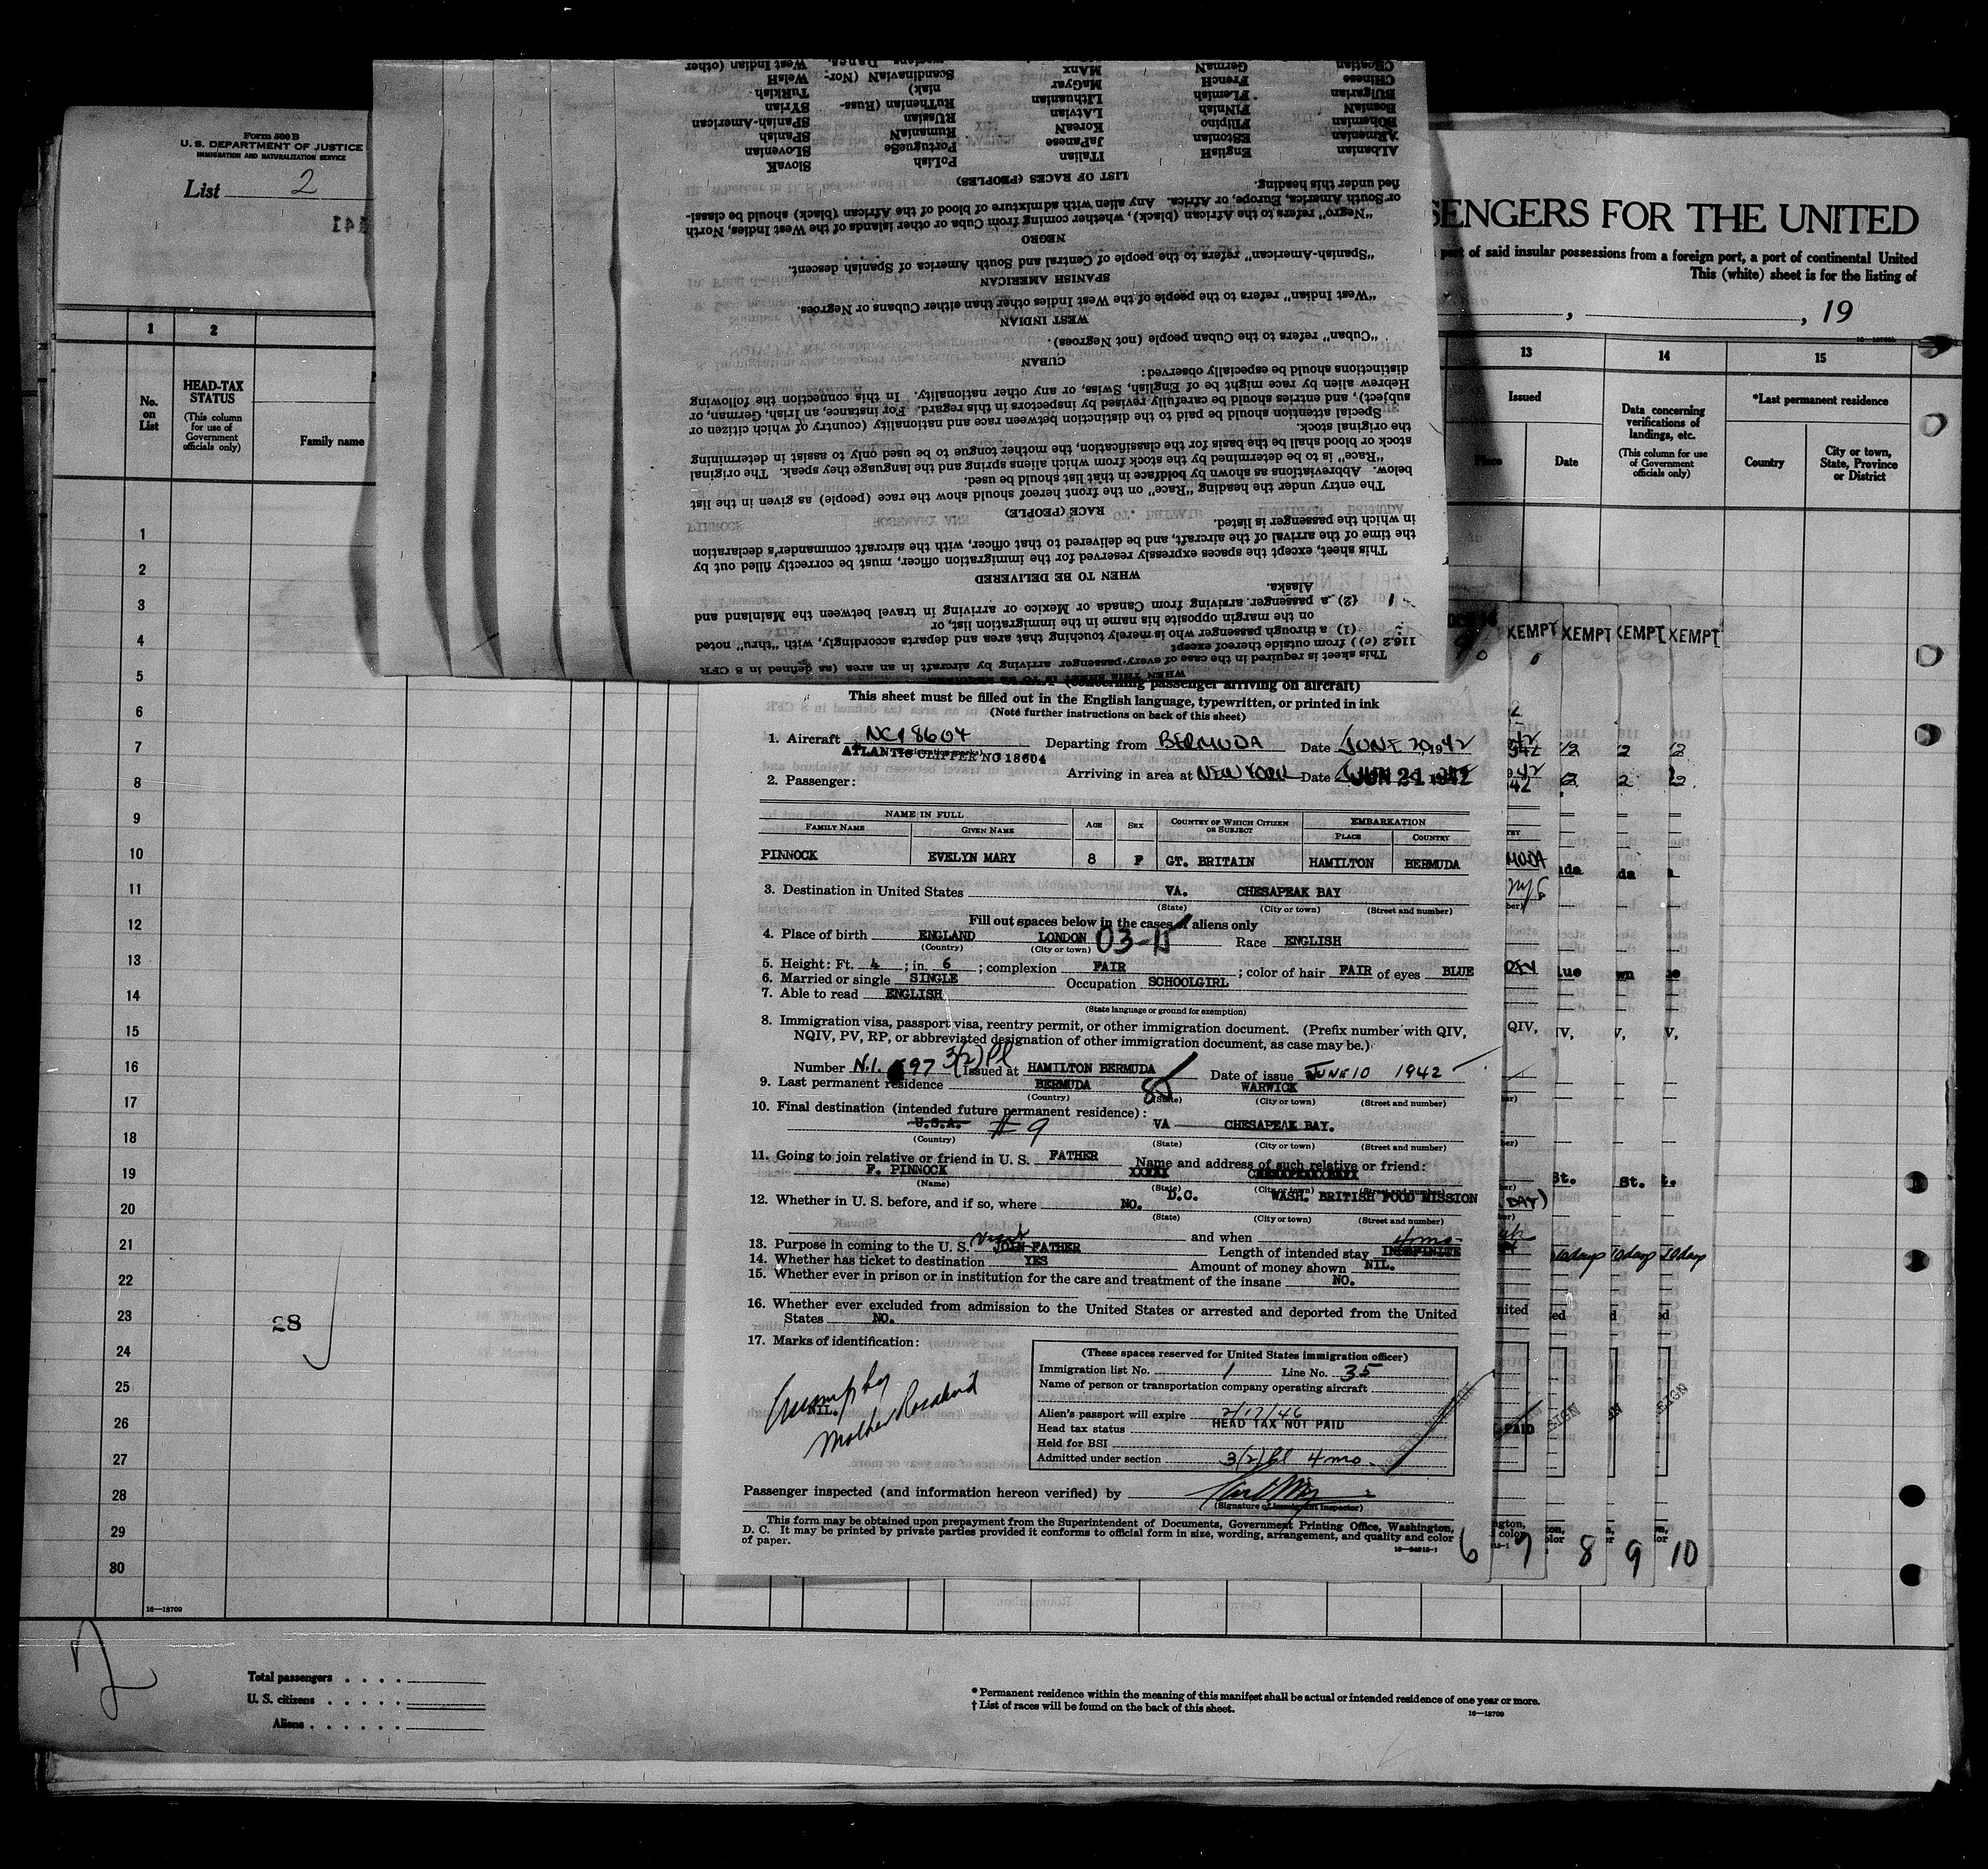 Form 500 B
U. S. DEPARTMENT OF JUSTICE
IMMIGRATION AND NATURALIZATION SERVICE
List 2
141
SENGERS FOR THE UNITED
part of said insular possessions from a foreign port, a port of continental United
This (white) sheet is for the listing of
, , 19
1
2
13
14
15
No. on List
HEAD-TAX STATUS
(This column for use of Government officials only)
Family name
Issued
Place
Date
Data concerning verifications of landings, etc.
(This column for use of Government officials only)
*Last permanent residence
Country
City or town, State, Province or District
1
2
3
4
5
6
7
8
9
10
11
12
13
14
15
16
17
18
19
20
21
22
23
28
24
25
26
27
28
29
30
16—18709
WHEN THIS SHEET IS TO BE
This sheet is required in the case of every passenger arriving by aircraft in an area (as defined in 8 CFR
116.2 (c)) from outside thereof except
(1) a through passenger who is merely touching that area and departs accordingly, with "thru" noted
on the margin opposite his name in the immigration list, or
(2) a passenger arriving from Canada or Mexico or arriving in travel between the Mainland and
Alaska.
WHEN TO BE DELIVERED
This sheet, except the spaces expressly reserved for the immigration officer, must be correctly filled out by
the time of the arrival of the aircraft, and be delivered to that officer, with the aircraft commander's declaration
in which the passenger is listed.
RACE (PEOPLE)
The entry under the heading "Race" on the front hereof should show the race (people) as given in the list
below. Abbreviations as shown by boldface in that list should be used.
"Race" is to be determined by the stock from which aliens spring and the language they speak. The original
stock or blood shall be the basis for the classification, the mother tongue to be used only to assist in determining
the original stock.
Special attention should be paid to the distinction between race and nationality (country of which citizen or
subject), and entries should be carefully revised by inspectors in this regard. For instance, an Irish, German, or
Hebrew alien by race might be of English, Swiss, or any other nationality. In this connection the following
distinctions should be especially observed:
CUBAN
"Cuban" refers to the Cuban people (not Negroes).
WEST INDIAN
"West Indian" refers to the people of the West Indies other than either Cubans or Negroes.
SPANISH AMERICAN
"Spanish-American" refers to the people of Central and South America of Spanish descent.
NEGRO
"Negro" refers to the African (black), whether coming from Cuba or other islands of the West Indies, North
or South America, Europe, or Africa. Any alien with admixture of blood of the African (black) should be classi-
fied under this heading.
LIST OF RACES (PEOPLES)
ALbanian EnglisH ITalian PoLish SlovaK
ARmenian EStonian JaPanese PortugueSe SLovenian
BOhemian FIlipino KoreaN RumaniaN SPanish
BosniaN FiNnish LAtvian RUssian SPanish-American
BUlgarian FLemish LIthuanian RuThenian (Russ- SYrian
CHinese FrencH MaGyar niak) TuRkish
CRoatian GermaN MAnx ScandinaviaN (Nor- WelsH
wegians, Danes, West Indian (other
(concerning passenger arriving on aircraft)
This sheet must be filled out in the English language, typewritten, or printed in ink
(Note further instructions on back of this sheet)
1. Aircraft NC18604 Departing from BERMUDA Date JUNE 20, 1942
ATLANTIC CLIPPER NC 18604
Arriving in area at NEW YORK Date JUN 21 1942
2. Passenger:
NAME IN FULL AGE SEX COUNTRY OF WHICH CITIZEN OR SUBJECT EMBARKATION
FAMILY NAME GIVEN NAME PLACE COUNTRY
PINNOCK EVELYN MARY 8 F GT. BRITAIN HAMILTON BERMUDA
3. Destination in United States VA. CHESAPEAK BAY
(State) (City or town) (Street and number)
Fill out spaces below in the cases of aliens only
4. Place of birth ENGLAND LONDON 03-15 Race ENGLISH
(Country) (City or town)
5. Height: Ft. 4; in. 6; complexion FAIR; color of hair FAIR of eyes BLUE
6. Married or single SINGLE Occupation SCHOOLGIRL
7. Able to read ENGLISH
(State language or ground for exemption)
8. Immigration visa, passport visa, reentry permit, or other immigration document. (Prefix number with QIV,
NQIV, PV, RP, or abbreviated designation of other immigration document, as case may be.)
3(2) Pl
Number N.I. 597 Issued at HAMILTON BERMUDA Date of issue JUNE 10 1942
9. Last permanent residence BERMUDA 85 WARWICK
(Country) (State) (City or town) (Street and number)
10. Final destination (intended future permanent residence):
U.S.A. #9 VA CHESAPEAK BAY.
(Country) (State) (City or town) (Street and number)
11. Going to join relative or friend in U. S. FATHER Name and address of such relative or friend:
F. PINNOCK
(Name) (State) (City or town) (Street and number)
D.C. WASH. BRITISH FOOD MISSION
12. Whether in U. S. before, and if so, where NO.
(State) (City or town) (Street and number)
and when
13. Purpose in coming to the U. S. Visit JOIN FATHER Length of intended stay 4 mo. INDEFINITE
14. Whether has ticket to destination YES Amount of money shown NIL.
15. Whether ever in prison or in institution for the care and treatment of the insane NO.
16. Whether ever excluded from admission to the United States or arrested and deported from the United
States NO.
17. Marks of identification:
NIL.
accomp by
Mother Rosalind
(These spaces reserved for United States immigration officer)
Immigration list No. 1 Line No. 35
Name of person or transportation company operating aircraft
Alien's passport will expire 2/17/46
Head tax status HEAD TAX NOT PAID
Held for BSI
Admitted under section 3(2) Pl 4 mo.
Passenger inspected (and information hereon verified) by
(Signature of Immigrant Inspector)
This form may be obtained upon prepayment from the Superintendent of Documents, Government Printing Office, Washington,
D. C. It may be printed by private parties provided it conforms to official form in size, wording, arrangement, and quality and color
of paper.
6 7 8 9 10
XEMPT XEMPT XEMPT XEMPT
10 days 10 days 10 days
2
Total passengers
U. S. citizens
Aliens
* Permanent residence within the meaning of this manifest shall be actual or intended residence of one year or more.
† List of races will be found on the back of this sheet.
16—18709